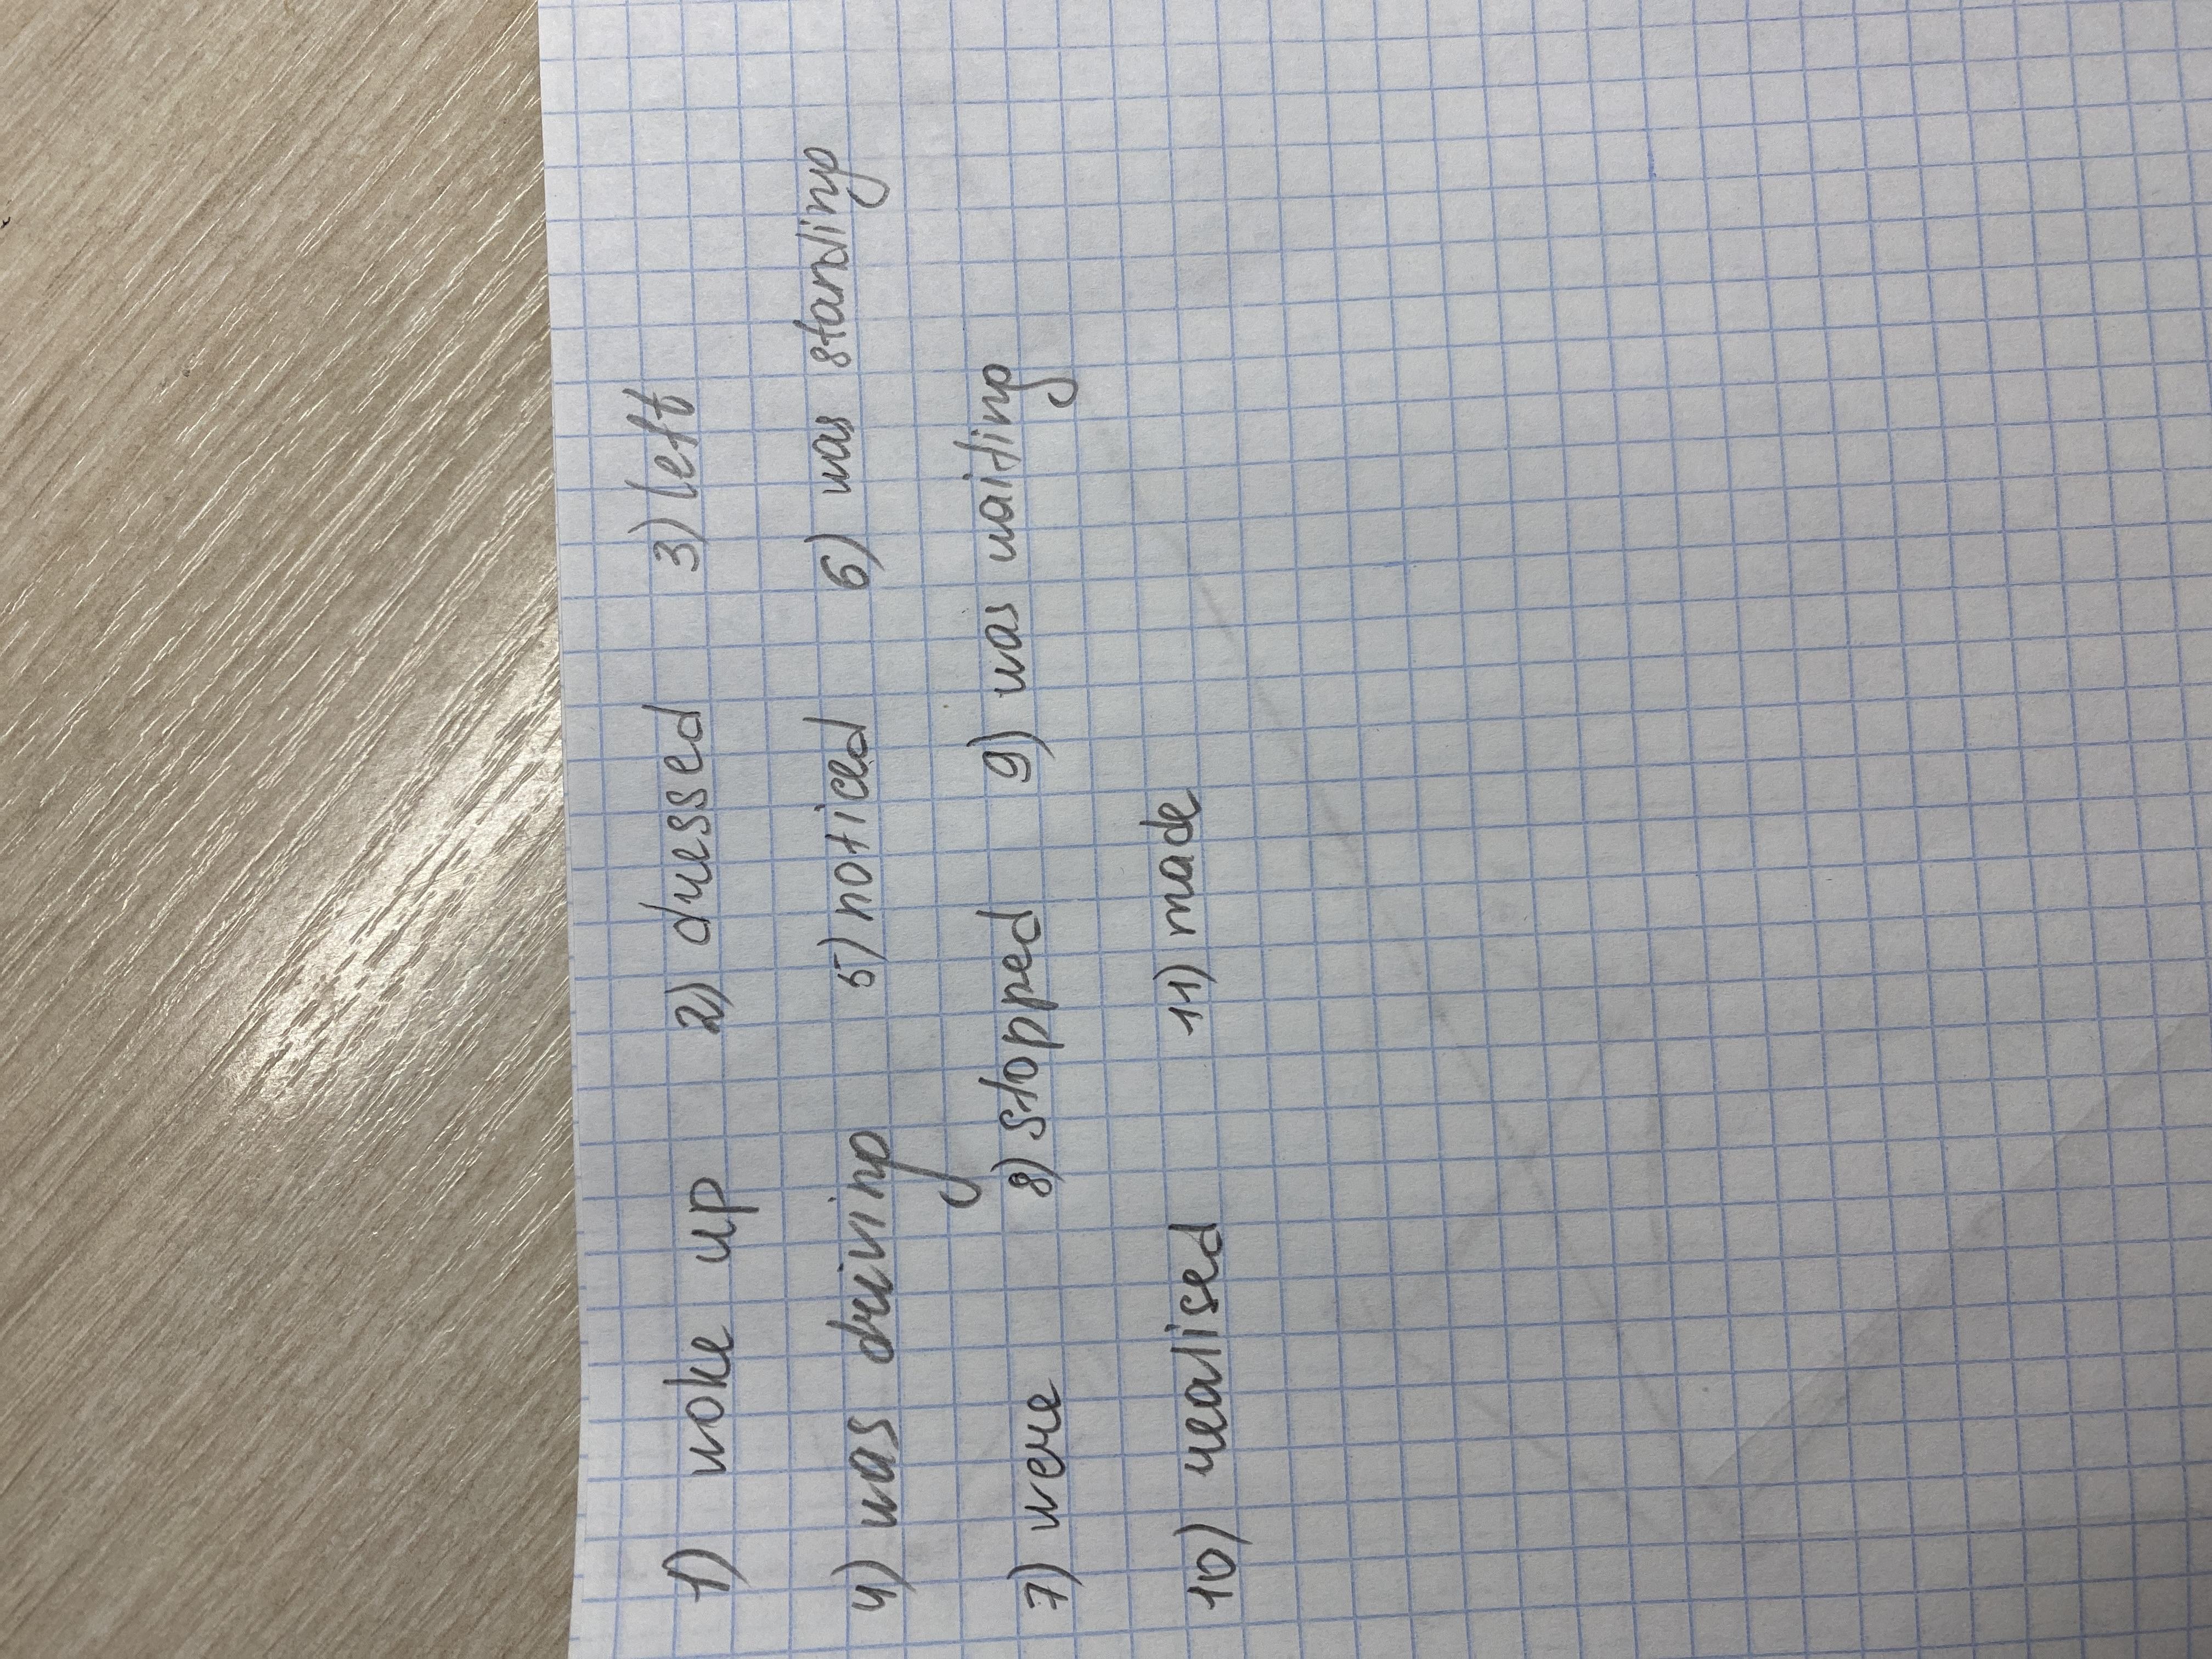 1) woke up 2) dressed 3) left
4) was driving 5) noticed 6) was standing
7) were 8) stopped 9) was waiting
10) realised 11) made